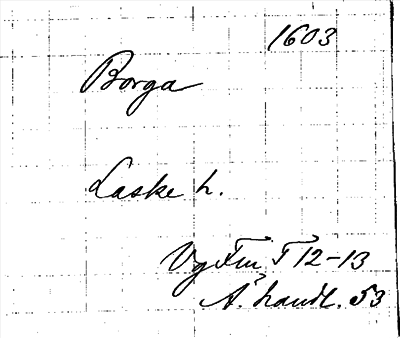 1603
Borga
Laske h.
Vg Fmf T 12-13
A. handl. 53